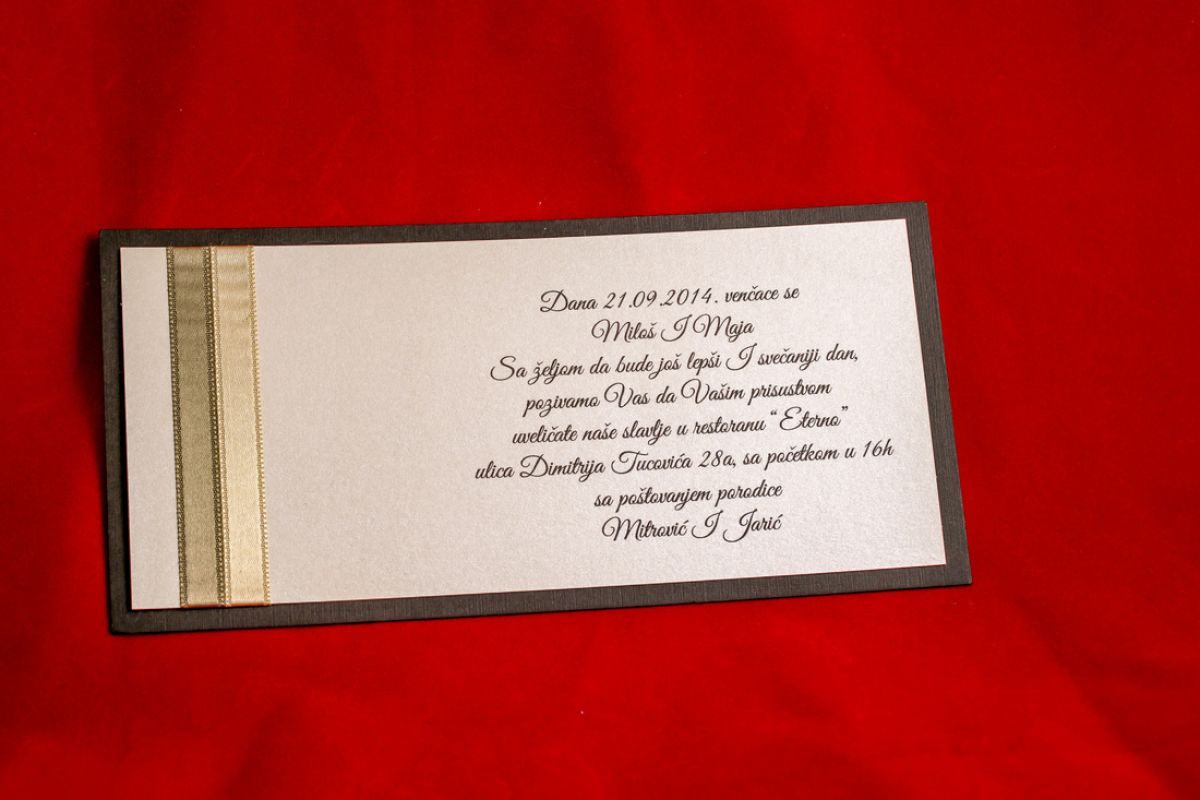 Dana 21.09.2014. venčace se
Miloš I Maja
Sa željom da bude još lepši I svečaniji dan,
pozivamo Vas da Vašim prisustvom
uveličate naše slavlje u restoranu “Eterno”
ulica Dimitrija Tucovića 28a, sa početkom u 16h
sa poštovanjem porodice
Mitrović I Jarić